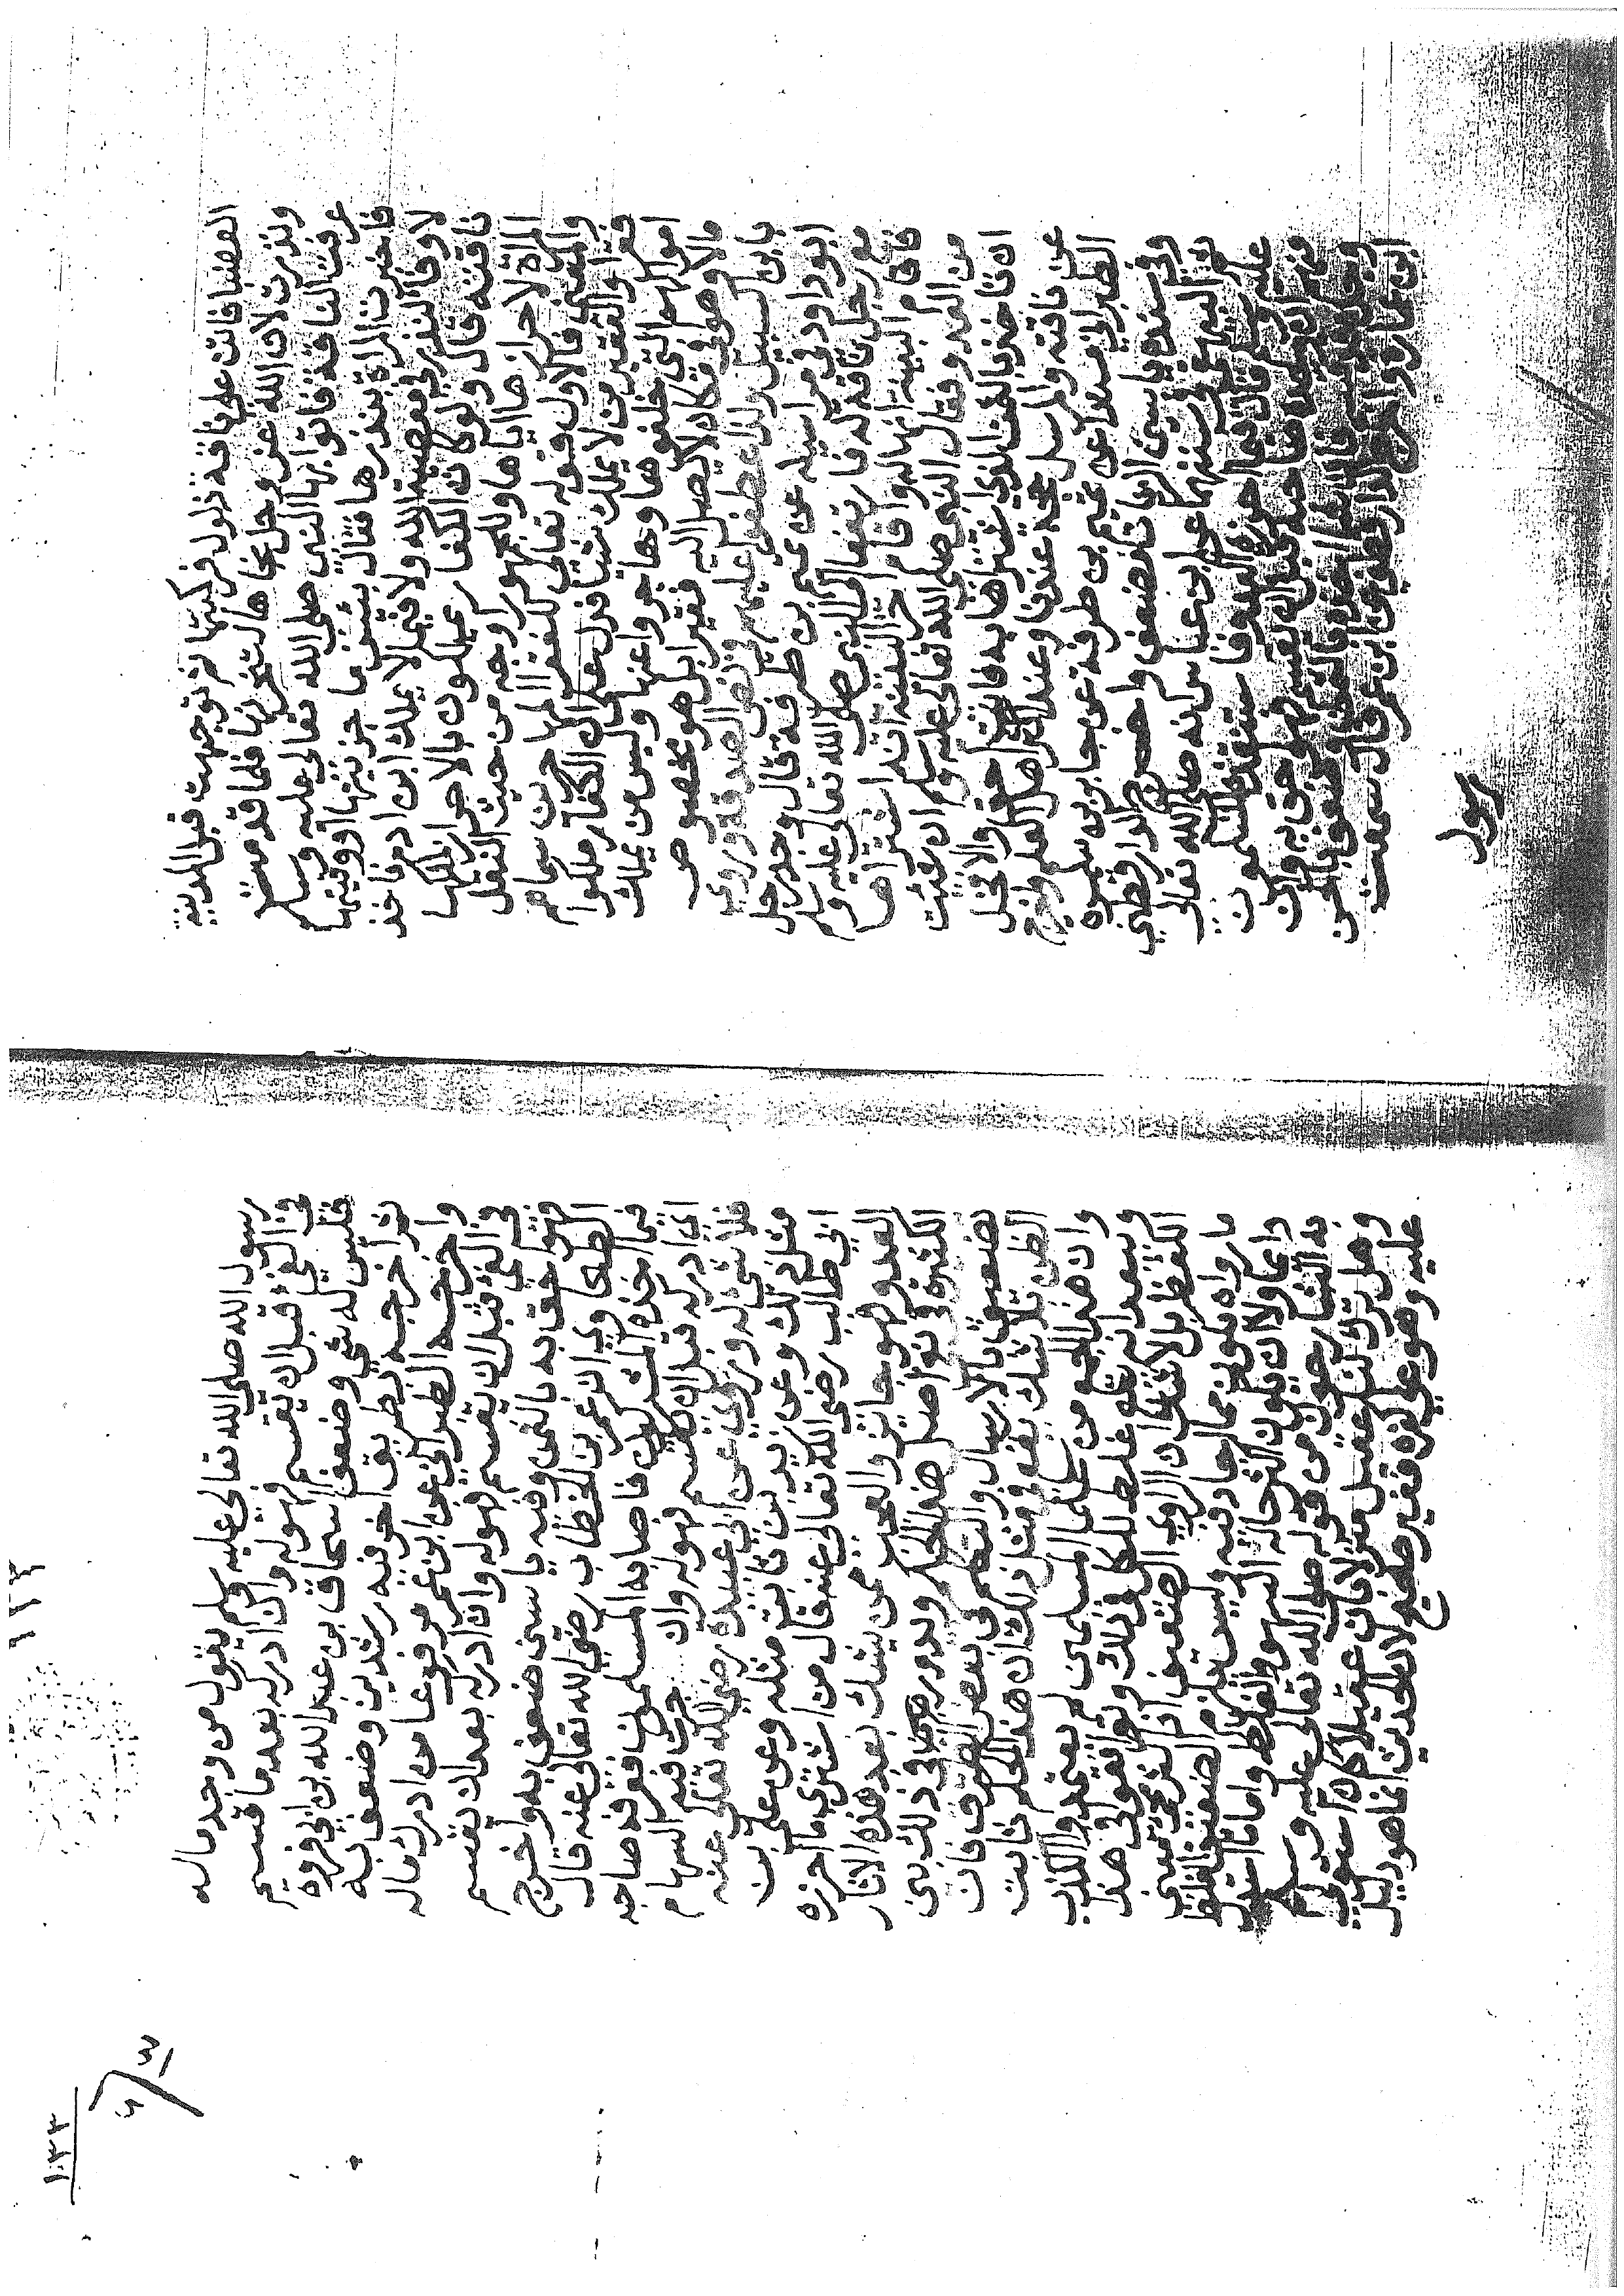 العضبا فاتت على ناقة ذلول فركبتها ثم توجهت قبل المدينة
ونذرت لان الله عز وجل نجاها لتنحرنها فلما قدمت
عرفت الناقة فاتوا بها النبي صلى الله تعالى عليه وسلم
فاخبرت المراة بنذرها فقال بئس ما جزيتها او وفيتها
لا وفا لنذر في معصية الله ولا فيما لا يملك ابن ادم فاخذ
ناقته قالوا ولو كان الكفار يملكون بالاحراز لملكها
المراة لاحرازها اياها وللجمهور اوجه من حيث النقل
والمعنى فالاول قوله تعالى للفقراء المهاجرين سماهم
فقراء والفقير من لا يملك شيئا فدل على ان الكفار ملكوا
اموالهم التي خلفوها وهاجروا عنها وليس من يملك
مالا وهو في مكان لا يصل اليه فقيرا بل هو مخصوص
بابن السبيل ولذا عطفوا عليهم في نص الصدقة وروى
ابو داود في مراسيله عن تميم بن طرفة قال وجد رجل
مع رجل ناقة له فارتفعا الى النبي صلى الله تعالى عليه وسلم
فاقام البينة انها له واقام اخر البينة انه اشتراها
من العدو فقال النبي صلى الله تعالى عليه وسلم ان رغبت
ان تاخذ بالثمن الذي اشتراها به فانت احق والا فخل
عن ناقته والمرسل حجة عندنا وعند اكثر اهل العلم واخرج
الطبراني مسندا عن تميم بن طرفة عن جابر بن سمرة
وفي سنده ياسين الزيات مضعف واخرج الدارقطني
ثم البيهقي في سننهما عن ابن عباس انه صلى الله تعالى
عليه وسلم قال فيما احرزه العدو فاستنقذه المسلمون
منهم ان وجده صاحبه قبل ان يقسم فهو احق به وان
وجده قد قسم فان شاء اخذه بالثمن وضعف بالحسن
ابن عمارة واخرج الدارقطني عن ابن عمر قال سمعت
رسول
رسول الله صلى الله تعالى عليه وسلم يقول من وجد ماله
في الفي قبل ان يقسم فهو له وان ادركه بعد ما قسم
فليس له شي وضعف اسحاق بن عبد الله بن ابي فروة
ثم اخرجه بطريق اخر فيه رشدين وضعف به
واخرجه الطبراني عن ابن عمر مرفوعا من ادرك ماله
في الفي قبل ان يقسم فهو له وان ادركه بعد ان يقسم
فهو احق به بالثمن وفيه ياسين ضعف به واخرج
الطحاوي ان عمر بن الخطاب رضي الله تعالى عنه قال
فيما اخذه المشركون فاصابه المسلمون فعرفه صاحبه
اي ادركه قبل ان يقسم فهو له وان جرت فيه السهام
فلا شي له وروى عن ابي عبيدة رضي الله تعالى عنه
مثل ذلك وعن زيد بن ثابت مثله وعن علي بن
ابي طالب رضي الله تعالى عنه قال من اشترى ما احرزه
العدو فهو جايز والعجب ممن يشك بعد هذه الاثار
الكثرة في اصل هذا الحكم ويدور في ذلك بين
تضعيف بالارسال والتكلم في بعض الطرف فان
الظن بلا شك يقع في مثل ذلك ان هذا الحكم ثابت
وان هذا الجمع من علماء المسلمين لم يعتمدوا الكذب
ويبعد انه وقع غلط للكل في ذلك وتوافقوا في هذا
اللفظ بل لا شك ان الراوي الضعيف اذا كثر مجي معنى
ما رواه يكون مما اجاد فيه وليس يلزم الضعيف الغلط
دائما ولا ان يكون اكثر حاله السهو والغلط واما ما استدل
به الشارحون من قوله صلى الله تعالى عليه وسلم
وهل ترك لنا عقيل منزلا فان عقيلا كان استولى
عليه وهو على كفره فغير صحيح لان الحديث انما هو دليل
١٠٣٣